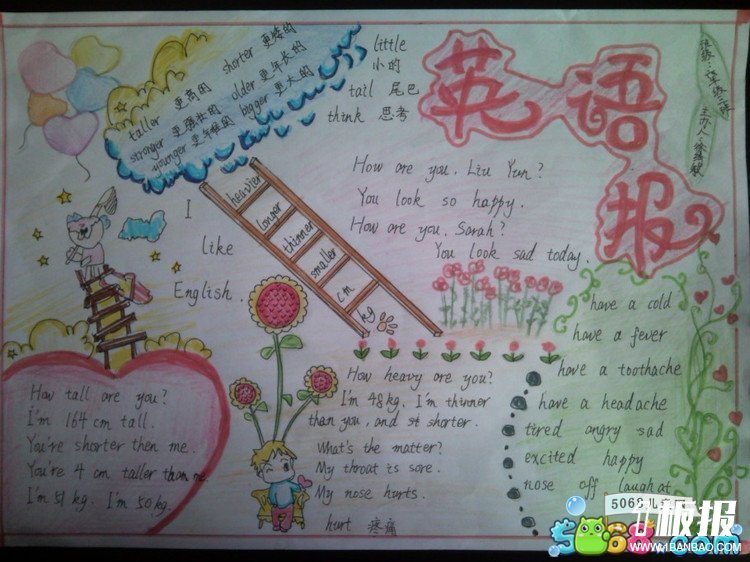 英语报
shorter 更矮的
taller 更高的
older 更年长的
stronger 更强壮的
bigger 更大的
younger 更年轻的
little
小的
tail 尾巴
think 思考
主办人:
heavier
longer
thinner
smaller
cm
kg
I
like
English
How are you. Liu Yun?
You look so happy.
How are you. Sarah?
You look sad today.
How tall are you?
I'm 164 cm tall.
You're shorter then me.
You're 4 cm taller than me
I'm 51 kg. I'm 50kg.
How heavy are you?
I'm 48kg. I'm thinner
than you, and shorter.
What's the matter?
My throat is sore.
My nose hurts.
hurt 疼痛
have a cold
have a fever
have a toothache
have a headache
tired angry sad
excited happy
nose off laugh at
5068儿
板报
5068.com
WWW.1BANBAO.COM